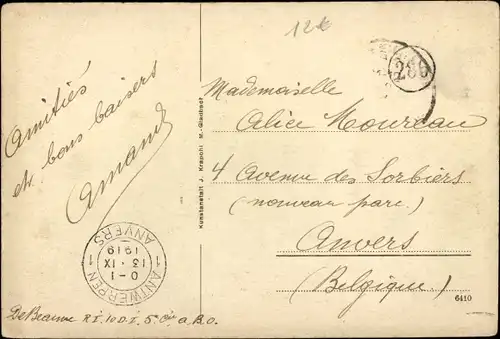 12€
286
Mademoiselle
Alice Moureau
4 Avenue des Sorbiers
(nouveau parc.)
Anvers
(Belgique.)
6410
Amitiés
et bons baisers
Amand
Kunstanstalt J. Krapohl M.-Gladbach
1 ANTWERPEN 1
0-1
13·IX
1919
ANVERS
De Beaune R.I. 10 D.I. 5e Cie a.B.O.